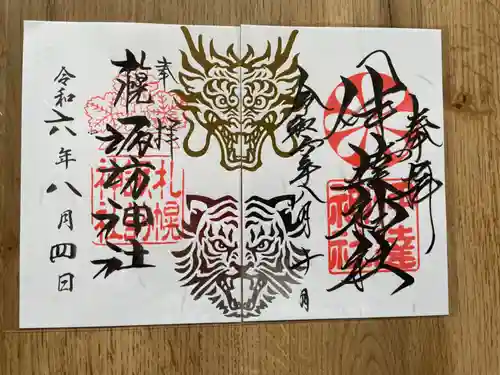 奉拝
伊達神社
令和六年八月
伊達
神社
奉拝
諏訪神社
令和六年八月四日
札幌
神社